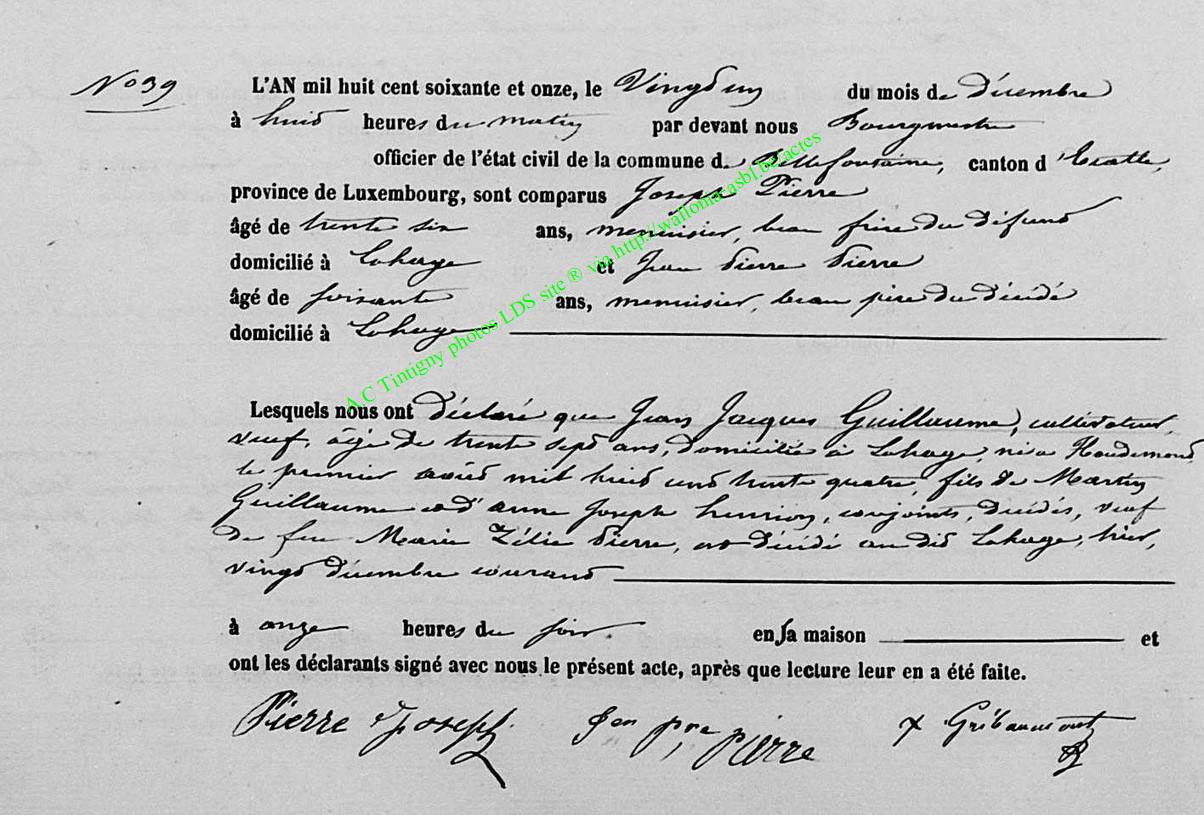 N° 39
L'AN mil huit cent soixante et onze, le Vingt un du mois de Décembre
à huit heures du matin par devant nous Bourgmestre
officier de l'état civil de la commune de Bellefontaine, canton d'Etalle,
province de Luxembourg, sont comparus Joseph Pierre
âgé de trente six ans, menuisier, beau frère du défunt
domicilié à Lahage et Jean Pierre Pierre
âgé de soixante ans, menuisier, beau père du décédé
domicilié à Lahage
A.C Tintigny photos LDS site ® via http://wallonia.asbl.be.actes
Lesquels nous ont déclaré que Jean Jacques Guillaume, cultivateur,
veuf, âgé de trente sept ans, domicilié à Lahage, né à Houdemont
le premier août mil huit cent trente quatre, fils de Martin
Guillaume et d'anne Joseph henrion, conjoints, décédés, veuf
de feu Marie Zélie Pierre, est décédé au dit Lahage, hier,
vingt décembre courant
à onze heures du soir. en sa maison et
ont les déclarants signé avec nous le présent acte, après que lecture leur en a été faite.
Pierre Joseph pre pierre Gribaumont